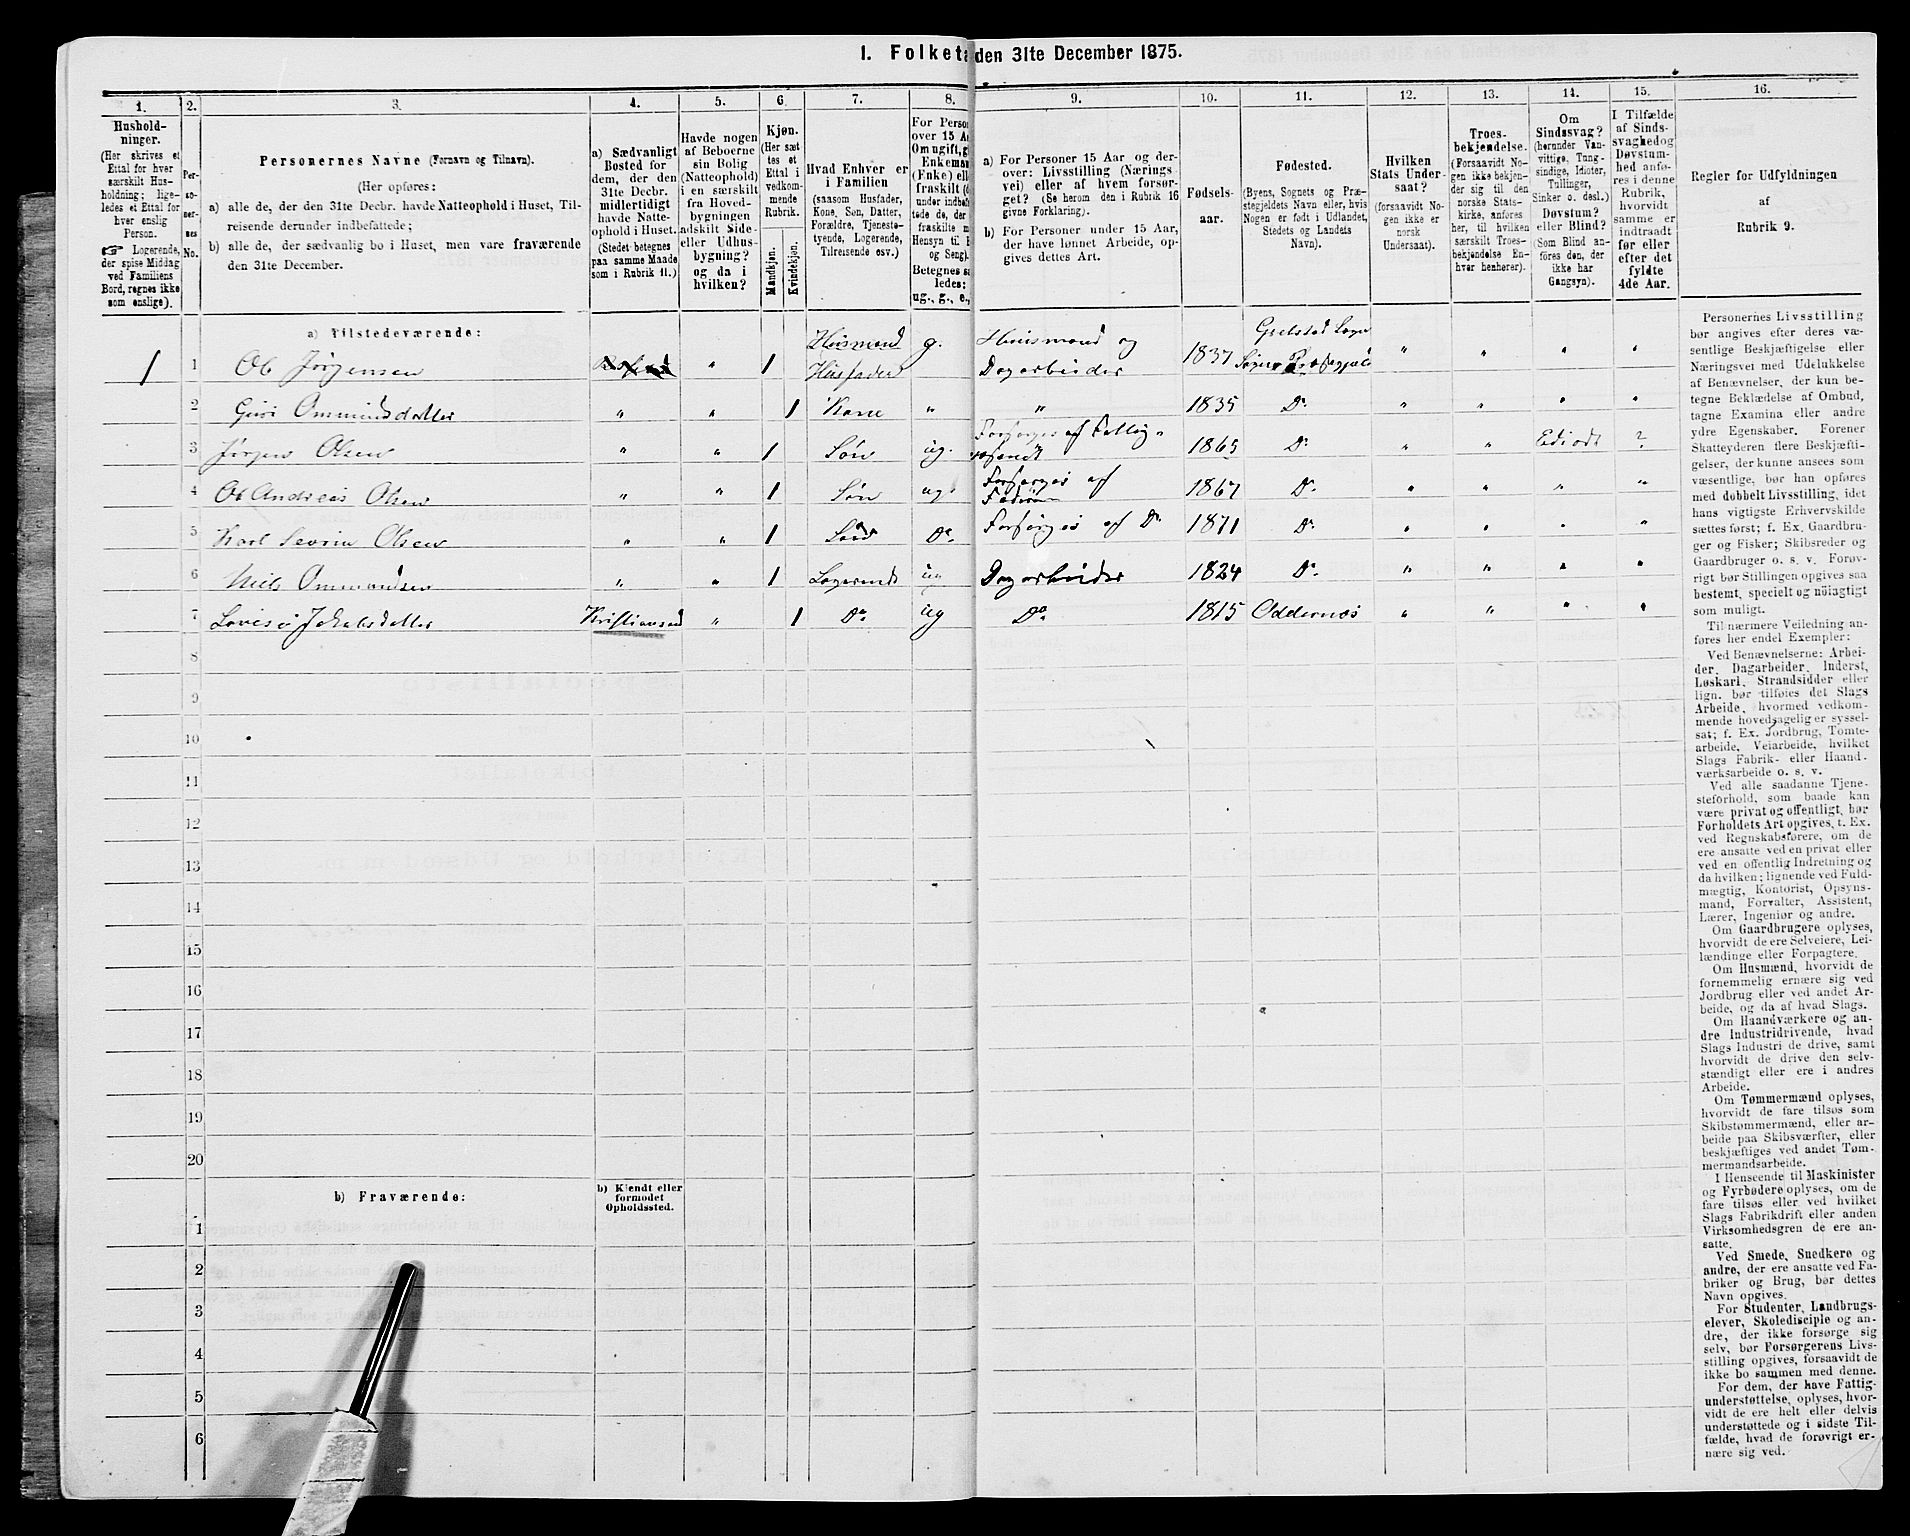 1. Folketa den 31te December 1875.
1. 2. 3. 4. 5. 6. 7. 8. 9. 10. 11. 12. 13. 14. 15. 16.
Hushold-
ninger.
(Her skrives et
Ettal for hver
særskilt Hus-
holdning; lige-
ledes et Ettal for
hver enslig
Person.
☞ Logerende,
der spise Middag
ved Familiens
Bord, regnes ikke
som enslige).
Per-
so-
ner-
nes
No.
Personernes Navne (Fornavn og Tilnavn).
(Her opføres:
a) alle de, der den 31te Decbr. havde Natteophold i Huset, Til-
reisende derunder indbefattede;
b) alle de, der sædvanlig bo i Huset, men vare fraværende
den 31te December.
a) Sædvanligt
Bosted for
dem, der den
31te Decbr.
midlertidigt
havde Natte-
ophold i Huset.
(Stedet betegnes
paa samme Maade
som i Rubrik 11.)
Havde nogen
af Beboerne
sin Bolig
(Natteophold)
i en særskilt
fra Hoved-
bygningen
adskilt Side-
eller Udhus-
bygning?
og da i
hvilken?
Kjøn.
(Her sæt
tes et
Ettal i
vedkom-
mende
Rubrik.
Mandkjøn.
Kvindekjøn.
Hvad Enhver er
i Familien
(saasom Husfader,
Kone, Søn, Datter,
Forældre, Tjeneste-
tyende, Logerende,
Tilreisende osv.)
For Perso
over 15 A
Om ugift, g
Enkeman
(Enke) ell
fraskilt (d
under indbef
tede de, der
fraskilte m
Hensyn til B
og Seng).
Betegnes sa
ledes:
ug., g., e.,
a) For Personer 15 Aar og der-
over: Livsstilling (Nærings
vei) eller af hvem forsør-
get? (Se herom den i Rubrik 16
givne Forklaring).
b) For Personer under 15 Aar,
der have lønnet Arbeide, op-
gives dettes Art.
Fødsels-
aar.
Fødested.
(Byens, Sognets og Præ-
stegjeldets Navn eller, hvis
Nogen er født i Udlandet,
Stedets og Landets
Navn).
Hvilken
Stats Under-
saat?
(forsaavidt No-
gen ikke er
norsk
Undersaat).
Troes-
bekjendelse.
(Forsaavidt No-
gen ikke bekjen-
der sig til den
norske Stats-
kirke, anføres
her, til hvilken
særskilt Troes-
bekjendelse En-
hver henhører).
Om
Sindssvag?
(herunder Van-
vittige, Tung-
sindige, Idioter,
Tullinger,
Sinker o. desl.)
Døvstum?
eller Blind?
(Som Blind an-
føres den, der
ikke har
Gangsyn).
I Tilfælde
af Sinds-
svaghed og
Døvstum-
hed anfø-
res i denne
Rubrik,
hvorvidt
samme er
indtraadt
før eller
efter det
fyldte
4de Aar.
Regler for Udfyldningen
af
Rubrik 9.
a) Tilstedeværende:
1 1 Ole Jørgensen " 1 Husmand Husfader g. Huusmand og Dagarbeider 1837 " " " "
2 Guri Ommundsdatter " " 1 Kone " " 1835 Do. " " " "
3 Jørgen Olsen " " 1 Søn ug. Forsørges af 1865 Do. " " Ediodt ?
4 Ole Andreas Olsen " " 1 Søn ug. Forsørges af Faderen 1867 Do. " " " "
5 Karl Severin Olsen " " 1 Søn Do. Forsørges af Do. 1871 Do. " " " "
6 Niels Ommundsen " " 1 Logerende ug Dagarbeider 1824 Do. " " " "
7 Lovise Jakobsdatter Kristiansand " 1 Do ug Do 1815 Oddernæs " " " "
8
9
10
11
12
13
14
15
16
17
18
19
20
b) Fraværende:
b) Kjendt eller
formodet
Opholdssted.
1
2
3
4
5
6
Personernes Livsstilling
bør angives efter deres væ-
sentlige Beskjæftigelse eller
Næringsvei med Udelukkelse
af Benævnelser, der kun be-
tegne Beklædelse af Ombud,
tagne Examina eller andre
ydre Egenskaber. Forener
Skatteyderen flere Beskjæfti-
gelser, der kunne ansees som
væsentlige, bør han opføres
med dobbelt Livsstilling, idet
hans vigtigste Erhvervskilde
sættes først; f. Ex. Gaardbru-
ger og Fisker; Skibsreder og
Gaardbruger o. s. v. Forøv-
rigt bør Stillingen opgives saa
bestemt, specielt og nöiagtigt
som muligt.
Til nærmere Veiledning an-
føres her endel Exempler:
Ved Benævnelserne: Arbei-
der, Dagarbeider, Inderst,
Løskarl, Strandsidder eller
lign. bør tilføies det Slags
Arbeide, hvormed vedkom-
mende hovedsagelig er syssel-
sat; f. Ex. Jordbrug, Tomte-
arbeide, Veiarbeide, hvilket
Slags Fabrik- eller Haand-
værksarbeide o. s. v.
Ved alle saadanne Tjene-
steforhold, som baade kan
være privat og offentligt, bør
Forholdets Art opgives, t. Ex.
ved Regnskabsførere, om de
ere ansatte ved en privat eller
ved en offentlig Indretning og
da hvilken; lignende ved Fuld-
mægtig, Kontorist, Opsyns-
mand, Forvalter, Assistent,
Lærer, Ingeniør og andre.
Om Gaardbrugere oplyses,
hvorvidt de ere Selveiere, Lei-
lændinge eller Forpagtere.
Om Husmænd, hvorvidt de
fornemmelig ernære sig ved
Jordbrug eller ved andet Ar-
beide, og da af hvad Slags.
Om Haandværkere og an-
dre Industridrivende, hvad
Slags Industri de drive, samt
hvorvidt de drive den selv-
stændigt eller ere i andres
Arbeide.
Om Tømmermænd oplyses,
hvorvidt de fare tilsøs som
Skibstømmermænd, eller ar-
beide paa Skibsværfter, eller
beskjæftiges ved andet Tøm-
mermandsarbeide.
I Henseende til Maskinister
og Fyrbødere oplyses, om de
fare tilsøs eller ved hvilket
Slags Fabrikdrift eller anden
Virksomhedsgren de ere an-
satte.
Ved Smede, Snedkere og
andre, der ere ansatte ved Fa-
briker og Brug, bør dettes
Navn opgives.
For Studenter, Landbrugs-
elever, Skoledisciple og an-
dre, der ikke forsørge sig
selv, bør Forsørgerens Livs-
stilling opgives, forsaavidt de
ikke bo sammen med denne.
For dem, der have Fattig-
understøttelse, oplyses, hvor-
vidt de ere helt eller delvis
understøttede og i sidste Til-
fælde, hvad de forøvrigt er-
nære sig ved.